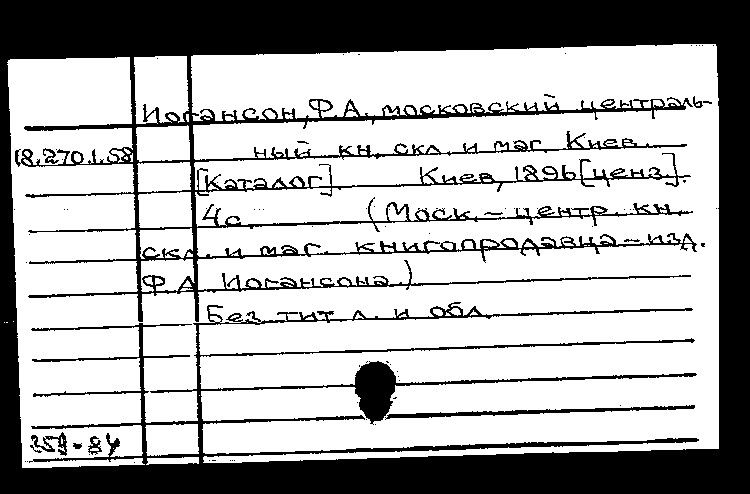 Иогансон, Ф.А., московский централь-
18.270.1.58 ный кн. скл. и маг. Киев.
[Каталог]. Киев, 1896 [ценз.].
4с. (Моск.-центр. кн.
скл. и маг. книгопродавца-изд.
Ф.А. Иогансона.)
Без тит. л. и обл.
-84